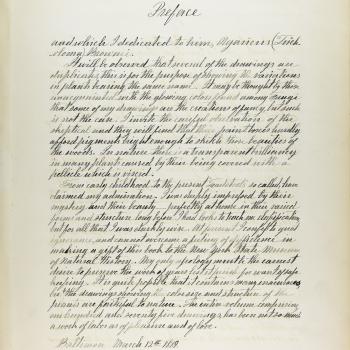 Preface
and which I dedicated to him, Agaricus (Trich
oloma) Brownei.
It will be observed that several of the drawings are
duplicates this is for the purpose of showing the variations
in plants bearing the same name. It may be thought by those
unacquainted with the glowing colors found among fungi
that some of my drawings are the creations of fancy, but such
is not the case. I invite the careful observation of the
skeptical and they will find that their paint boxes hardly
afford pigments bright enough to match these beauties of
the woods. In nature there is a transparent brilliancy
in many plants caused by their being covered with a
pellicle which is viscid.
From early childhood to the present Toadstools so called, have
claimed my admiration. I was deeply impressed by their
mystery and their classic perfectly at home in their varied
forms and structure long before I had books to teach me classification
but for all that I was sturdily wise. At present I confess to great
ignorance, and cannot overcome a feeling of diffidence in
making a gift of this book to the New York State Museum
of Natural History. My only apology must be the earnest
desire to preserve the work of years
It is quite possible that it contains many inaccuracies
but the drawings showing the color size and structure of the
plants are faithful to nature. The entire volume comprising
one hundred and seventy five drawings, has been not so much
a work of labor as of pleasure and of love.
Baltimore March 12th